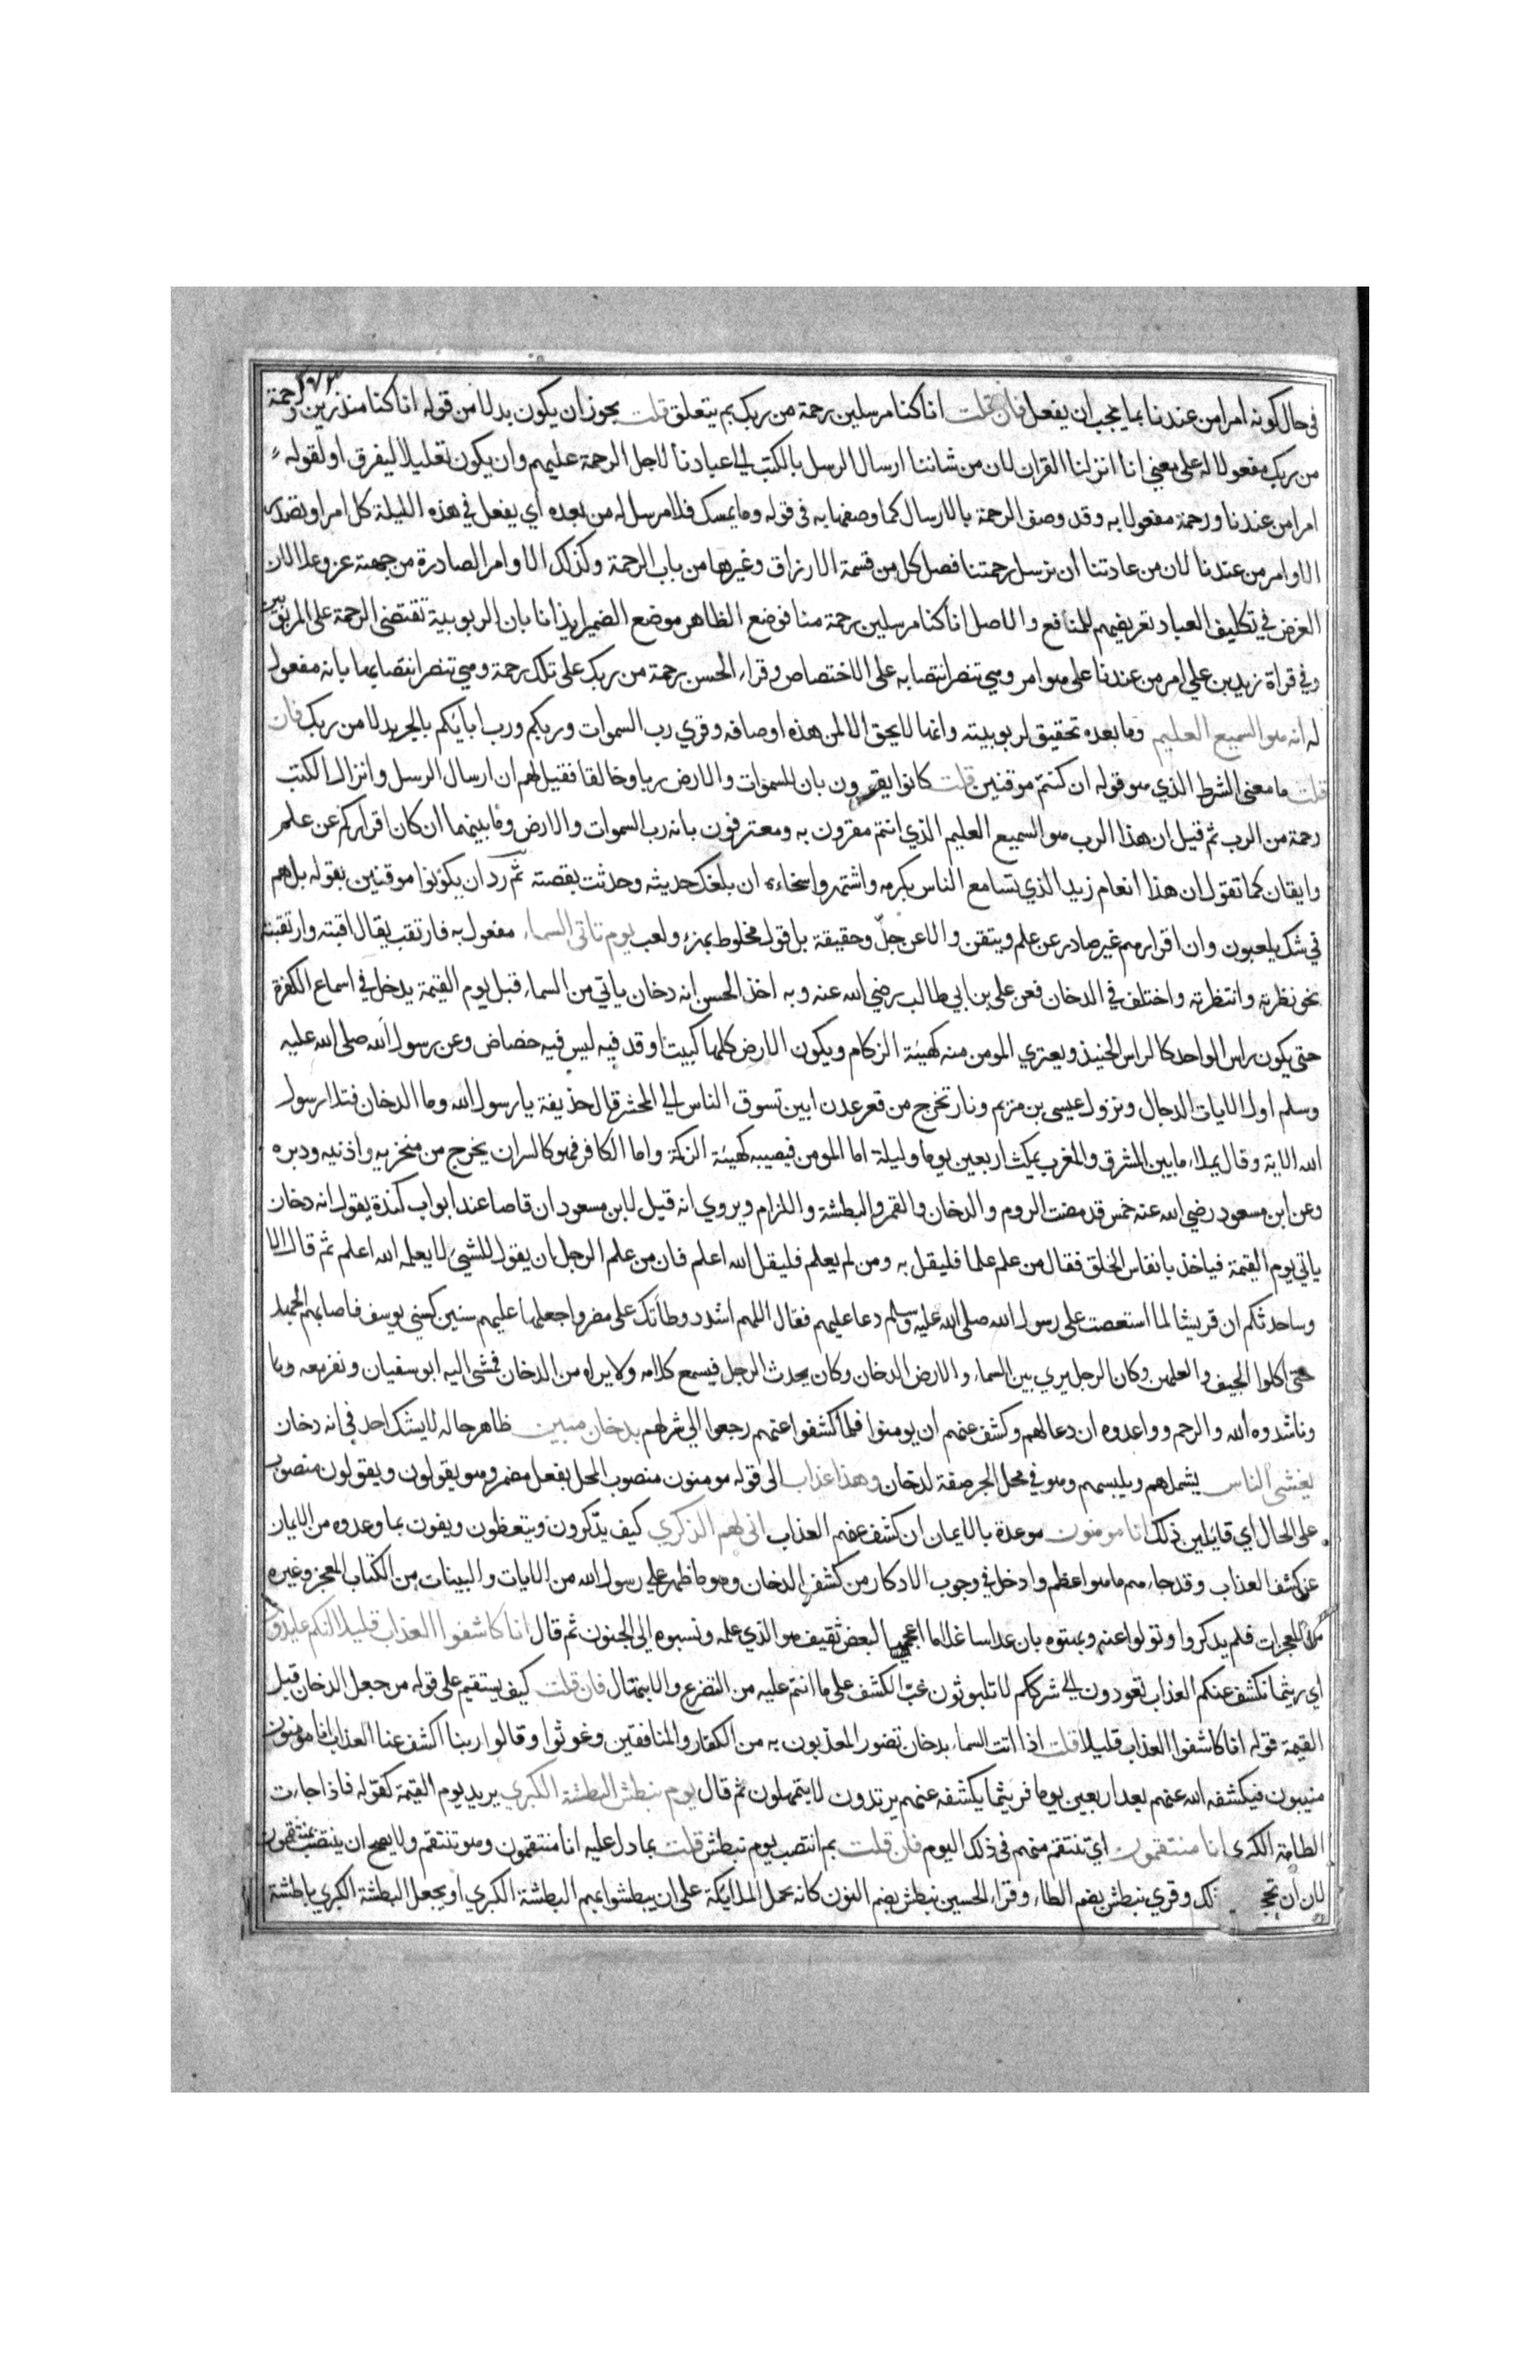 في حال كونه امرا من عندنا بما يجب ان يفعل فان قلت انا كنا مرسلين رحمة من ربك بم يتعلق قلت يجوز ان يكون بدلا من قوله انا كنا منذرين ورحمة
من ربك مفعولا له على معنى انا انزلنا القران لان من شاننا ارسال الرسل بالكتب الى عبادنا لاجل الرحمة عليهم وان يكون تعليلا ليفرق او لقوله
امرا من عندنا ورحمة مفعولا به وقد وصف الرحمة بالارسال كما وصفها به في قوله وما يمسك فلا مرسل له من بعده اي يفعل في هذه الليلة كل امر او تصدر
الاوامر من عندنا لان من عادتنا ان نرسل رحمتنا فصل كل من قسمة الارزاق وغيرها من باب الرحمة وكذلك الاوامر الصادرة من جهته عز وعلا لان
الغرض في تكليف العباد تعريضهم للمنافع والاصل انا كنا مرسلين رحمة منا فوضع الظاهر موضع الضمير ايذانا بان الربوبية تقتضي الرحمة على المربوبين
وفي قراة زيد بن علي امر من عندنا على هو امر وهي تنصر انتصابه على الاختصاص وقراء الحسن رحمة من ربك على تلك رحمة وهي تنصر انتصابها بانه مفعول
له انه هو السميع العليم وما بعده تحقيق لربوبيته وانما لا يحق الا لمن هذه اوصافه وقري رب السموات وربكم ورب ابايكم بالجر بدلا من ربك فان
قلت ما معنى الشرط الذي هو قوله ان كنتم موقنين قلت كانوا يقرون بان للسموات والارض ربا وخالقا فقيل لهم ان ارسال الرسل وانزال الكتب
رحمة من الرب ثم قيل ان هذا الرب هو السميع العليم الذي انتم مقرون به ومعترفون بانه رب السموات والارض وما بينهما ان كان اقراركم عن علم
وايقان كما تقول ان هذا انعام زيد الذي تسامع الناس بكرمه واشتهروا سخاءه ان بلغك حديثه وحدثت بقصته ثم رد ان يكونوا موقنين بقوله بل هم
في شك يلعبون وان اقرارهم غير صادر عن علم ويتقن ولا عن جد وحقيقة بل قول مخلوط بهزء ولعب يوم تاتي السماء مفعول به فارتقب يقال رقبته وارتقبته
نحو نظرته وانتظرته واختلف في الدخان فعن علي بن ابي طالب رضي الله عنه وبه اخذ الحسن انه دخان ياتي من السماء قبل يوم القيمة يدخل في اسماع الكفرة
حتى يكون راس الواحد كالراس الحنيذ ويعتري المومن منه كهيئة الزكام ويكون الارض كلها كبيت اوقد فيه ليس فيه خصاص وعن رسول الله صلى الله عليه
وسلم اول الايات الدجال ونزول عيسى بن مريم ونار تخرج من قعر عدن ابين تسوق الناس الى المحشر قال حذيفة يا رسول الله وما الدخان فتلا رسول
الله الاية وقال يملاء ما بين المشرق والمغرب يمكث اربعين يوما وليلة اما المومن فيصيبه كهيئة الزكمة واما الكافر فهو كالسران يخرج من منخريه واذنيه ودبره
وعن ابن مسعود رضي الله عنه خمس قد مضت الروم والدخان والقمر والبطشة واللزام ويروي انه قيل لابن مسعود ان قاصا عند ابواب كندة يقول انه دخان
ياتي يوم القيمة فياخذ بانفاس الخلق فقال من علم علما فليقل به ومن لم يعلم فليقل الله اعلم فان من علم الرجل ان يقول للشيء لا يعلمه الله اعلم ثم قال الا
وساحدثكم ان قريشا لما استعصت على رسول الله صلى الله عليه وسلم دعا عليهم فقال اللهم اشدد وطاتك على مضر واجعلها عليهم سنين كسني يوسف فاصابهم الجهد
حتى اكلوا الجيف والعلهز وكان الرجل يري بين السماء والارض الدخان وكان يحدث الرجل فيسمع كلامه ولا يراه من الدخان فمشى اليه ابو سفيان ونفر معه
وناشدوه الله والرحم وواعدوه ان دعا لهم وكشف عنهم ان يومنوا فلما كشفوا عنهم رجعوا الى شركهم بدخان مبين ظاهر حاله لا يشك احد في انه دخان
يغشى الناس يشملهم ويلبسهم وهو في محل الجر صفة لدخان وهذا عذاب الى قوله مومنون منصوب المحل بفعل مضمر وهو يقولون ويقولون منصوب
على الحال اي قايلين ذلك انا مومنون موعدة بالايمان ان كشف عنهم العذاب انى لهم الذكري كيف يذكرون ويتعظون ويفون بما وعدوه من الايمان
عن كشف العذاب وقد جاءهم ما هو اعظم وادخل في وجوب الادكار من كشف الدخان وهو ما ظهر على رسول الله من الايات والبينات من الكتاب المعجز وغيره
من المعجزات فلم يذكروا وتولوا عنه وبهتوه بان عداسا غلاما اعجميا لبعض ثقيف هو الذي علمه ونسبوه الى الجنون ثم قال انا كاشفوا العذاب قليلا انكم عايدون
اي ريثما نكشف عنكم العذاب تعودون الى شرككم لا تلبثون غب الكشف على ما انتم عليه من التضرع والابتهال فان قلت كيف يستقيم على قوله من جعل الدخان قبل
القيمة قوله انا كاشفوا العذاب قليلا قلت اذا اتت السماء بدخان تضور المعذبون به من الكفار والمنافقين وغوثوا وقالوا ربنا اكشف عنا العذاب انا مومنون
منيبون فيكشفه الله عنهم بعد اربعين يوما فريثما يكشفه عنهم يرتدون لا يتمهلون ثم قال يوم نبطش البطشة الكبري يريد يوم القيمة كقوله فاذا جاءت
الطامة الكبرى انا منتقمون اي ننتقم منهم في ذلك اليوم فان قلت بم انتصب يوم نبطش قلت بما دل عليه انا منتقمون وهو ننتقم ولا يصح ان ينتصب بمنتقمون
لان ان تحج ذلك وقري نبطش بضم الطاء وقراء الحسين نبطش بضم النون كانه يحمل الملايكة على ان يبطشوا بهم البطشة الكبري او يجعل البطشة الكبري باطشة